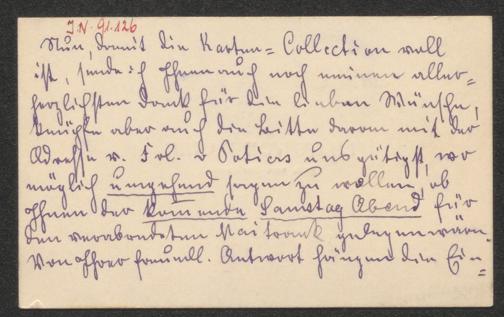 J.N. 91.126
Nun, damit die Karten=Collection voll
ist, sende ich Ihnen auch noch meinen aller=
herzlichsten Dank für die lieben Wünsche,
knüpfe aber auch die Bitte daran mit der
Adresse v. Frl. v uns gütigst, wo
möglich umgehend sagen zu wollen, ob
Ihnen der komende Samstag Abend für
den verabredeten Maitrank gelegen wäre.
Von Ihrer freundl. Antwort hängen die Ein=